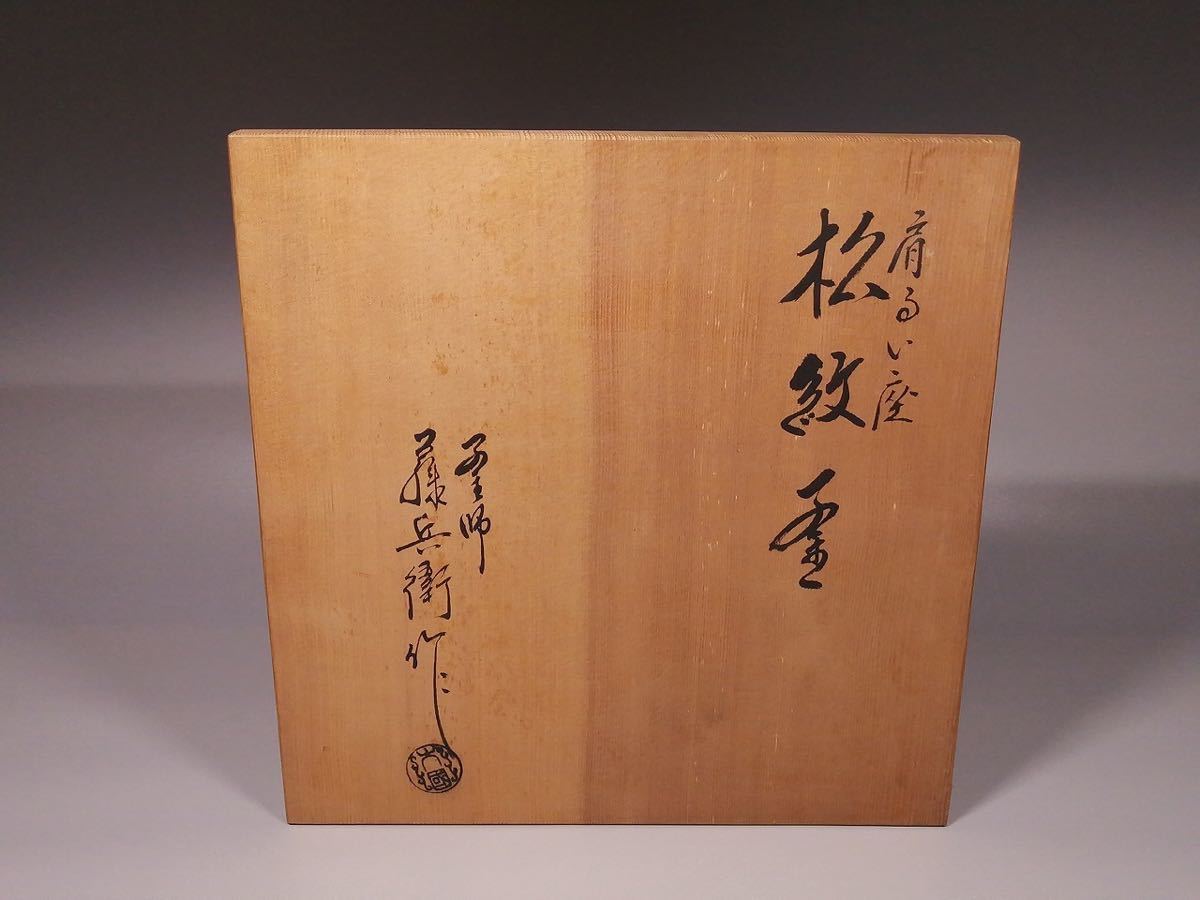 肩るい座
松紋釜
釜師
藤兵衛作
大國